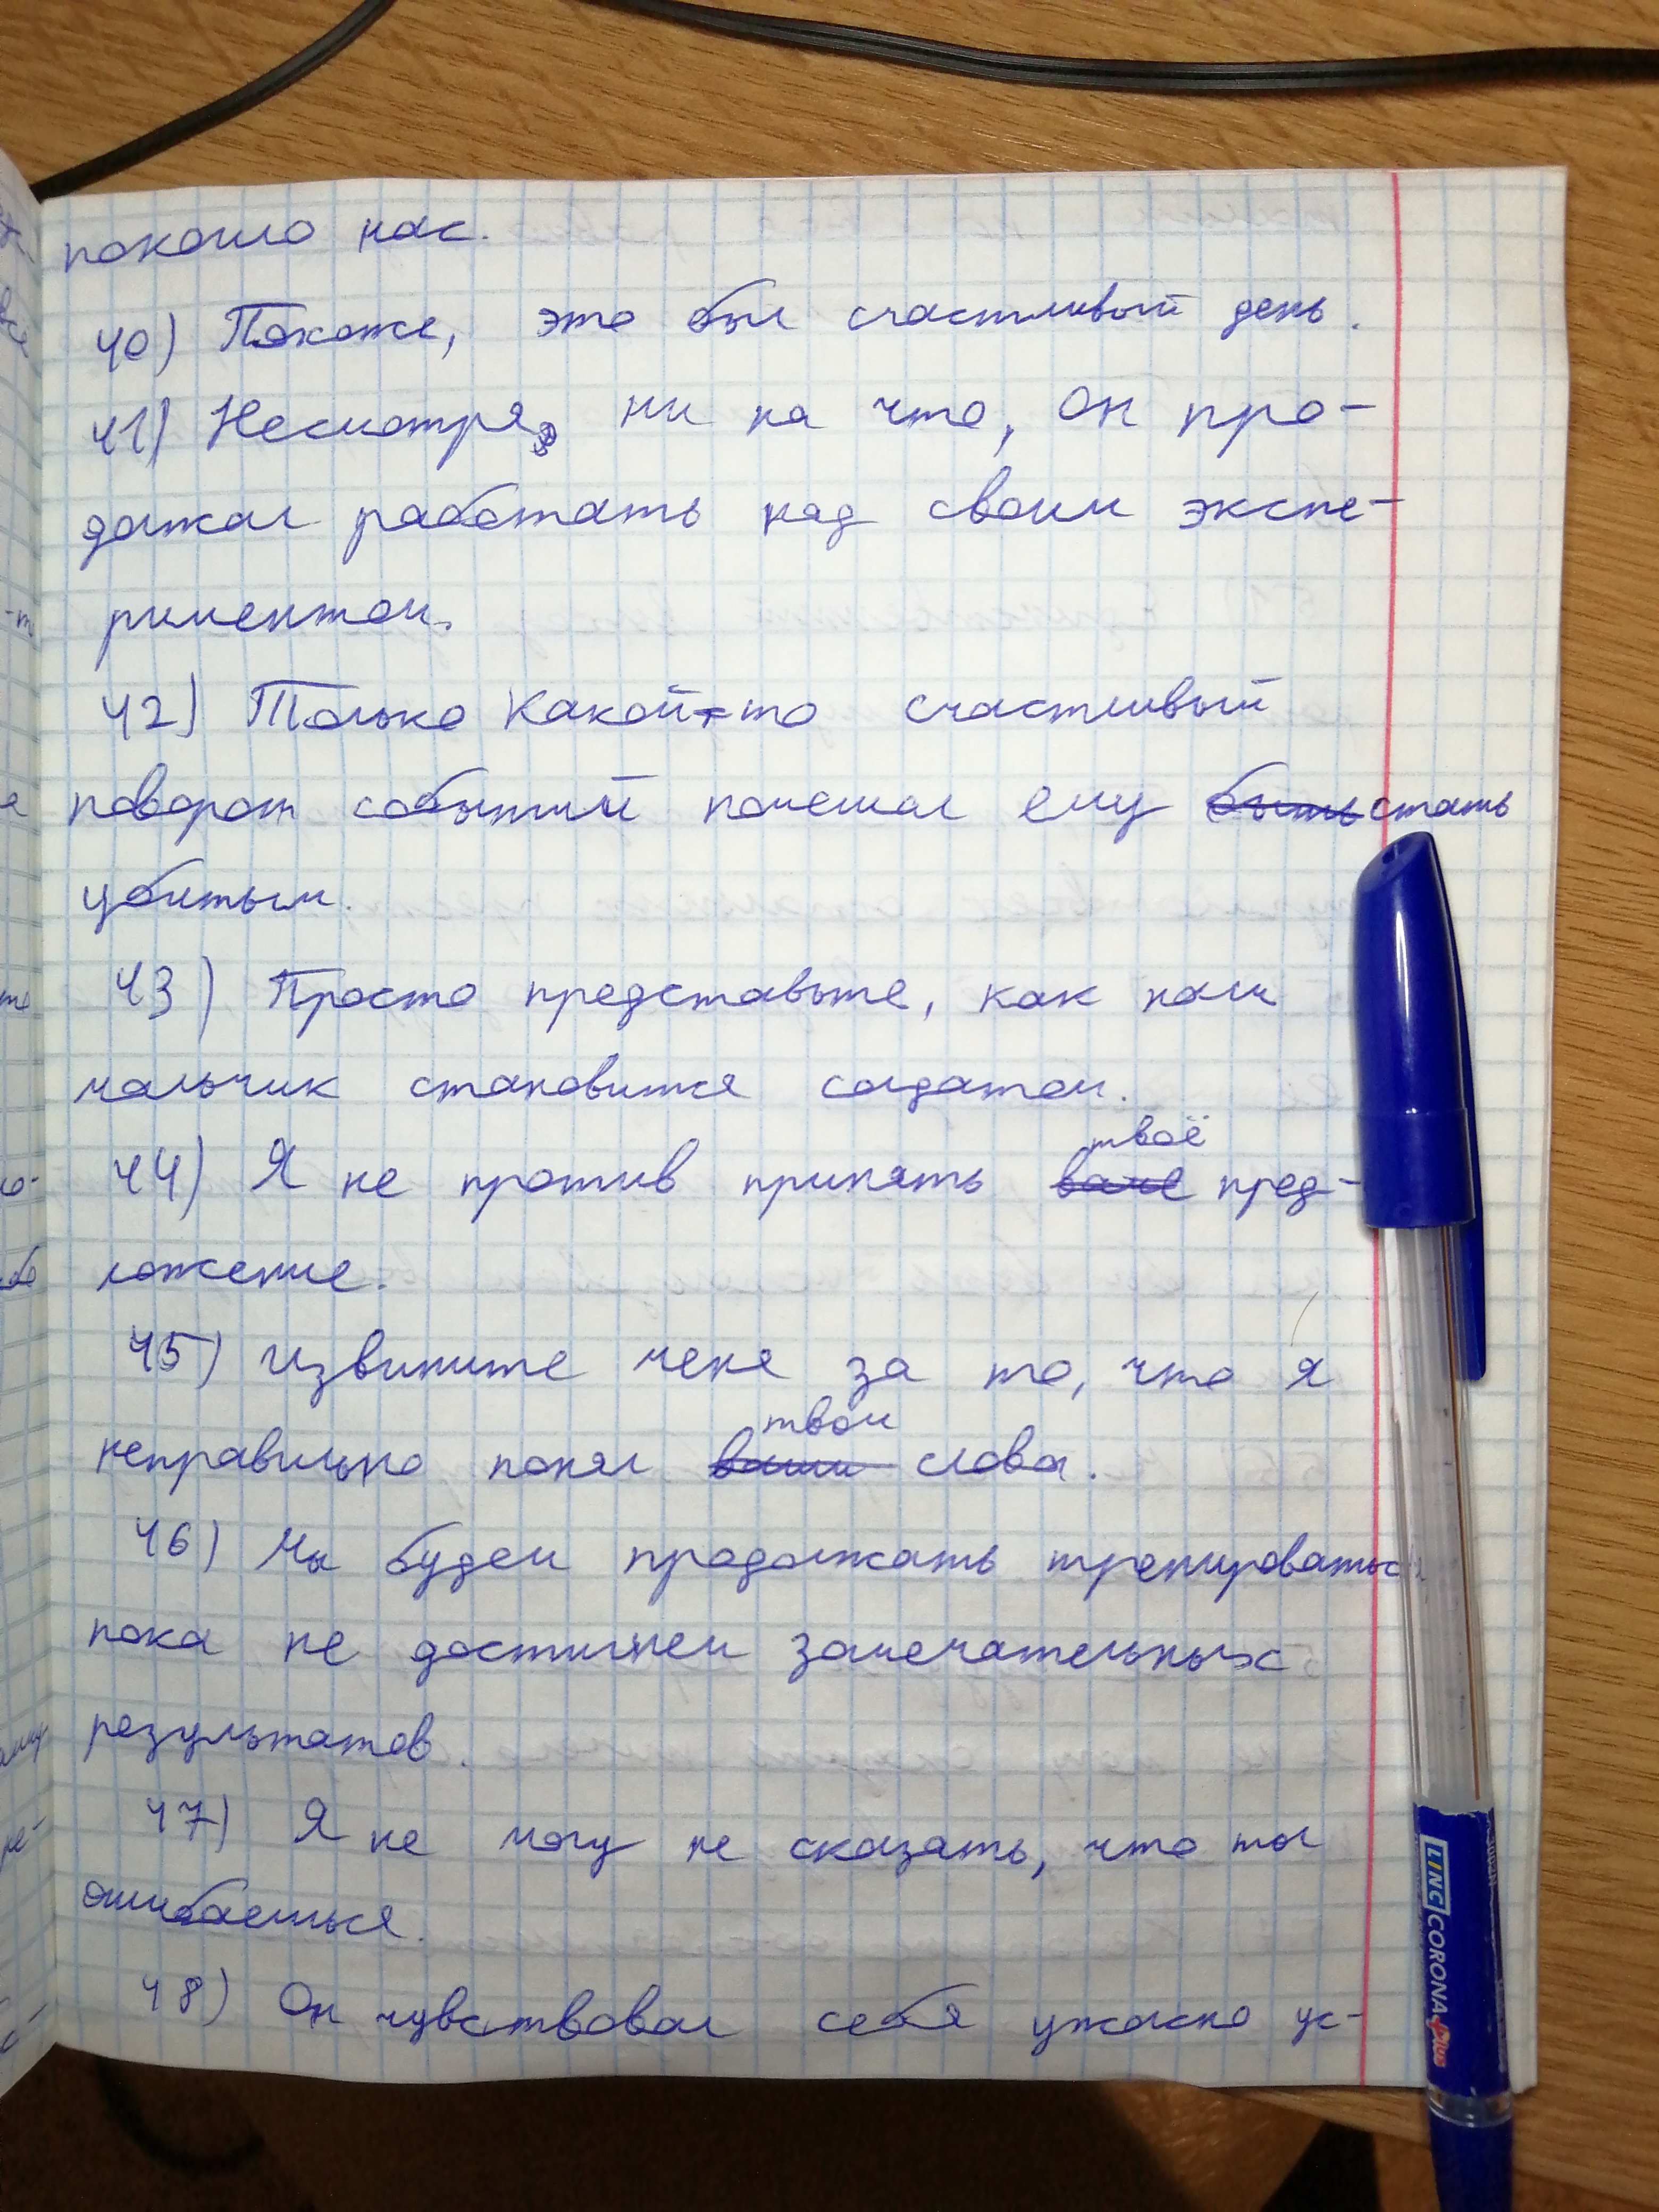 покоило нас.
40) Похоже, это был счастливый день.
41) Несмотря, ни на что, он про-
должал работать над своим экспе-
риментом.
42) Только какой-то счастливый
поворот событий помешал ему быть стать
убитым.
43) Просто представьте, как наш
мальчик становится солдатом.
твоё
44) Я не против принять ваше пред-
ложение.
45) Извините меня за то, что я
твои
неправильно понял ваши слова.
46) Мы будем продолжать тренироваться
пока не достигнем замечательных
результатов.
47) Я не могу не сказать, что ты
ошибаешься.
48) Он чувствовал себя ужасно ус-
LINC CORONA plus